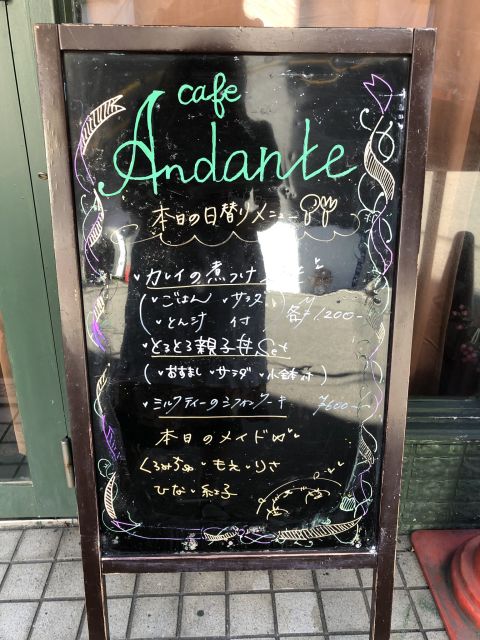 cafe
Andante
本日の日替りメニュー
・カレイの煮つけ
(・ごはん ・サラダ)
・とん汁 付
各¥1200-
・とろとろ親子丼Set
(・おすまし ・サラダ ・小鉢 )
・ミルクティーのシフォンケーキ ¥600-
本日のメイド
くるみちゃん・もえ・りさ
ひな・紅子